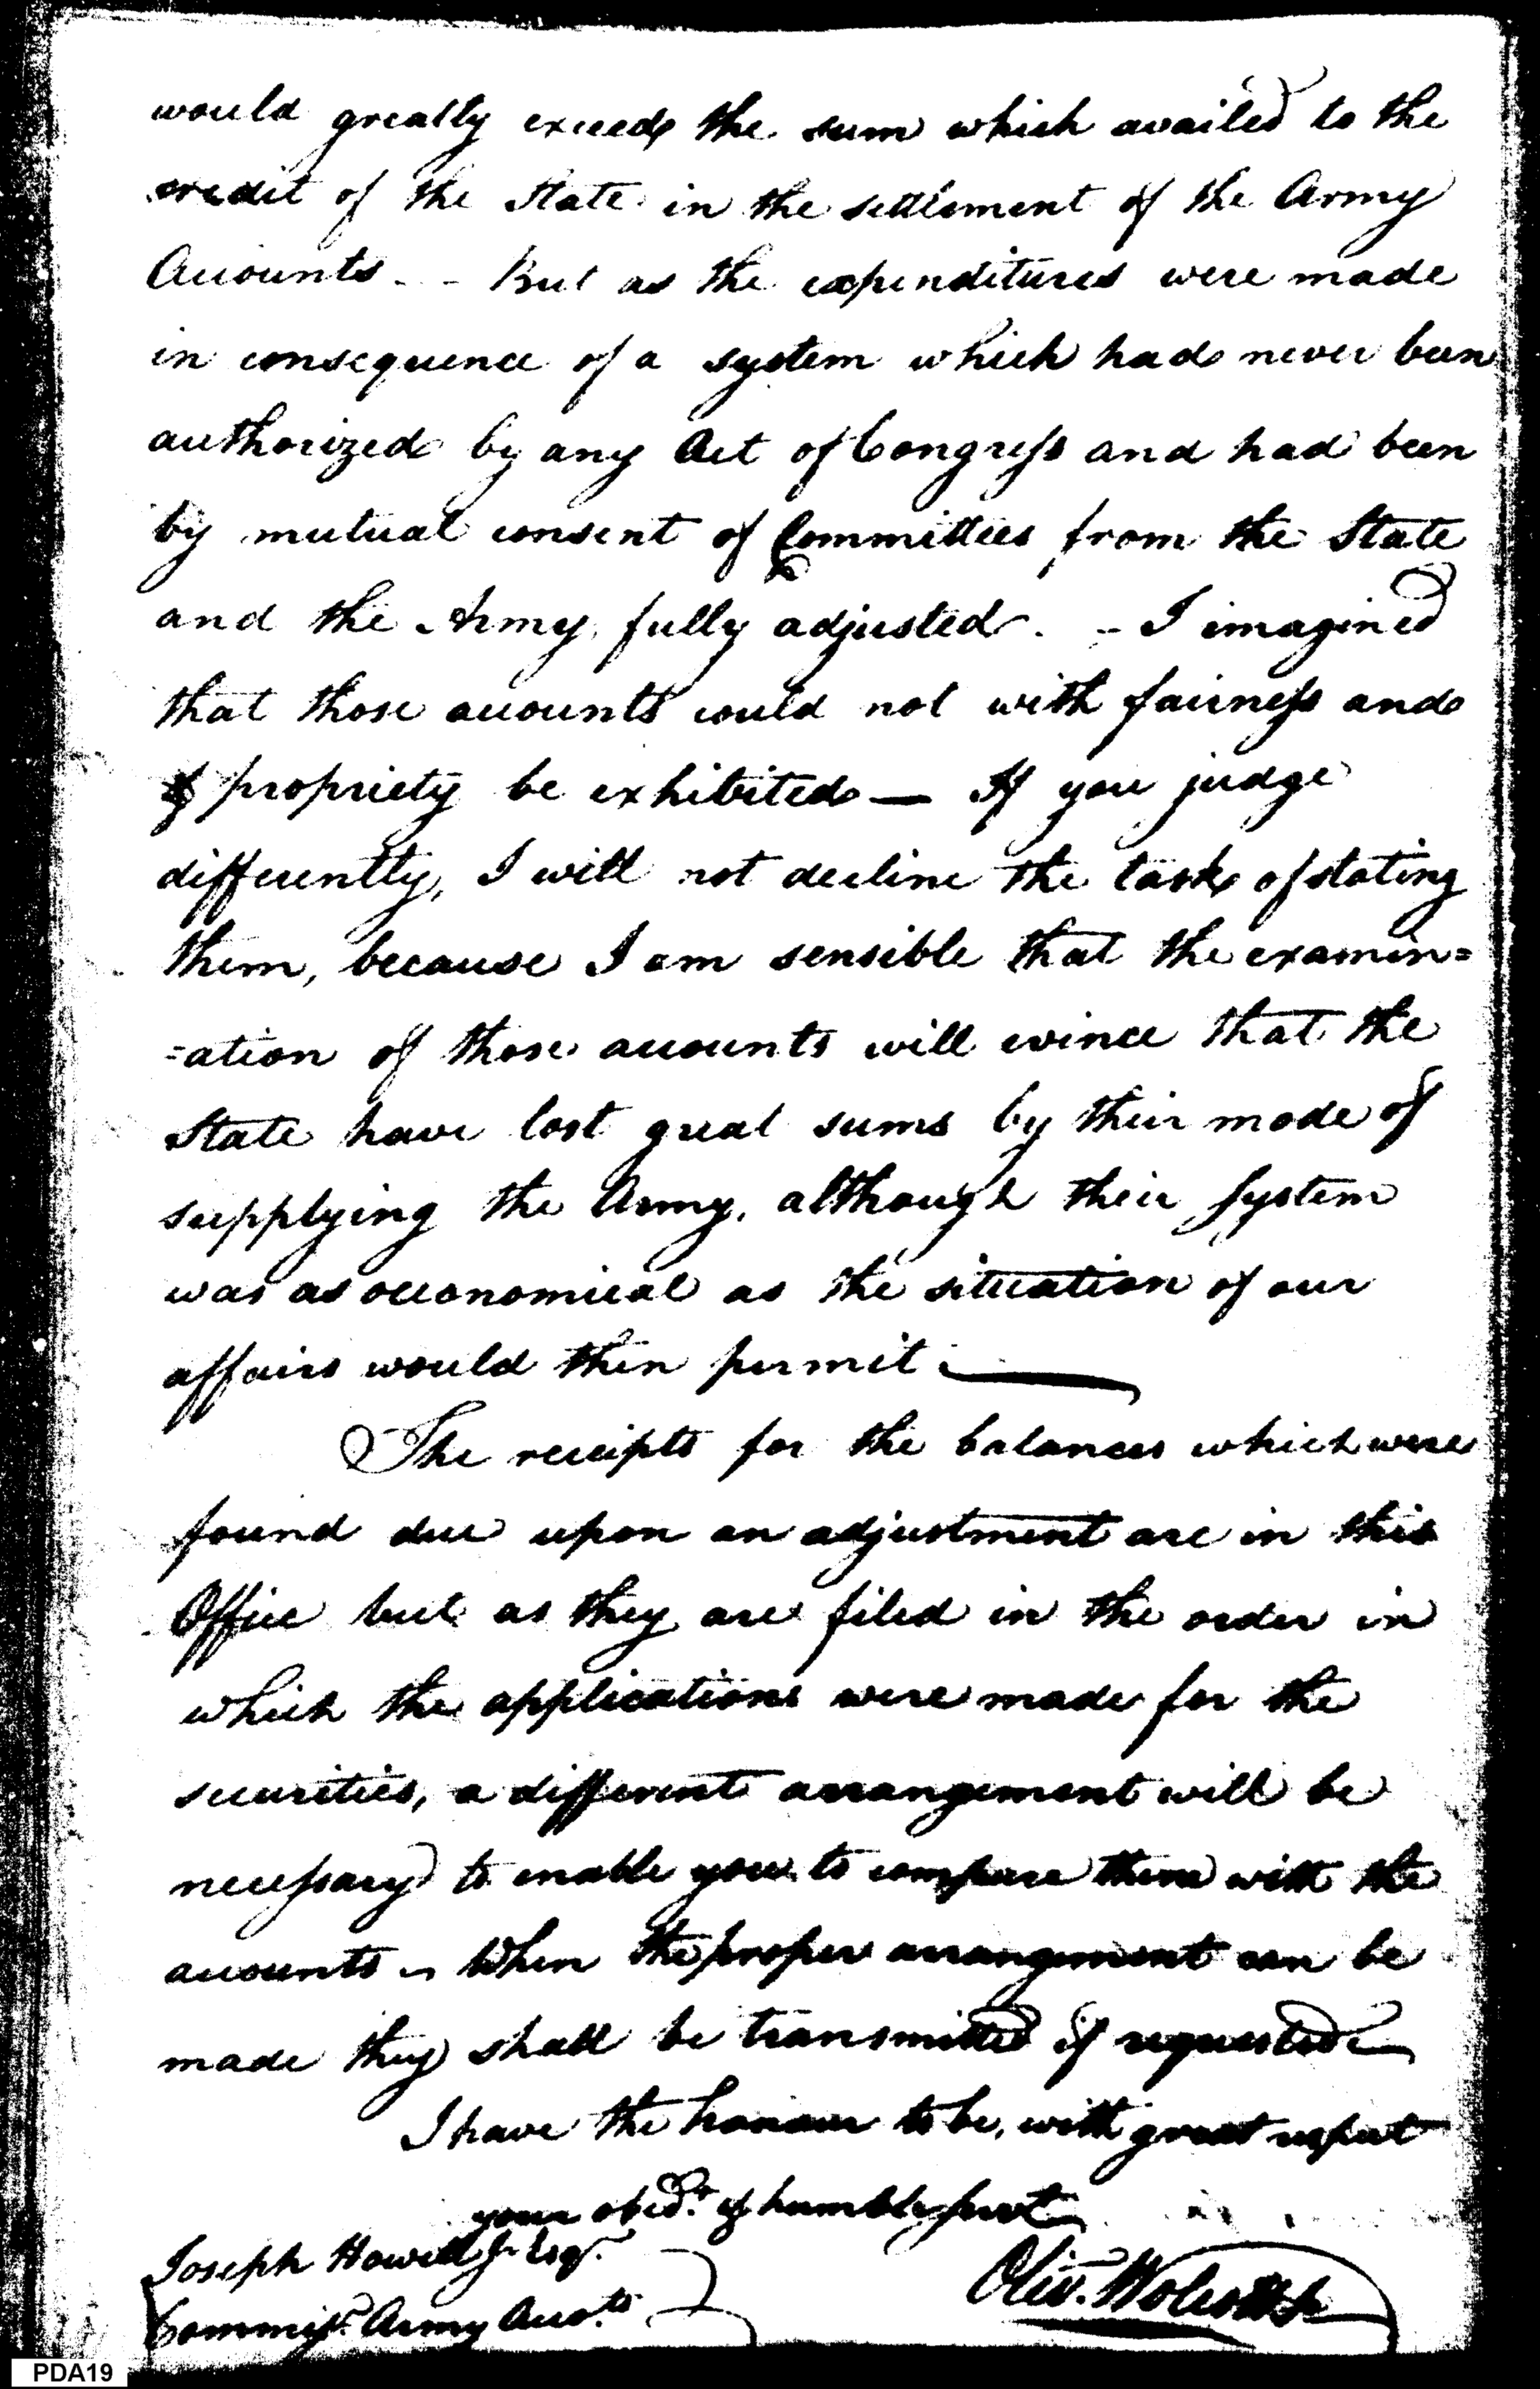 would greatly exceed the sum which availed to the
credit of the State in the settlement of the Army
Accounts - - But as the expenditures were made
in consequence of a system which had never been
authorized by any Act of Congress and had been
by mutual consent of Committees from the State
and the Army, fully adjusted. - I imagined
that those accounts could not with fairness and
& propriety be exhibited — If you judge
differently, I will not decline the task of stating
them, because I am sensible that the examin=
=ation of those accounts will evince that the
State have lost great sums by their mode of
supplying the Army, although their System
was as oeconomical as the situation of our
affairs would then permit.
The receipts for the balances which were
found due upon an adjustment are in this
Office but as they are filed in the order in
which the applications were made for the
securities, a different arrangement will be
necessary to enable you to compare them with the
accounts - When the proper arrangement can be
made they shall be transmitted if requested
I have the honour to be, with great respect
your obedt. & humble servt
Joseph Howell Jr Esqr.
Commissr. Army Accots.
Oliv. Wolcott Jr
PDA19